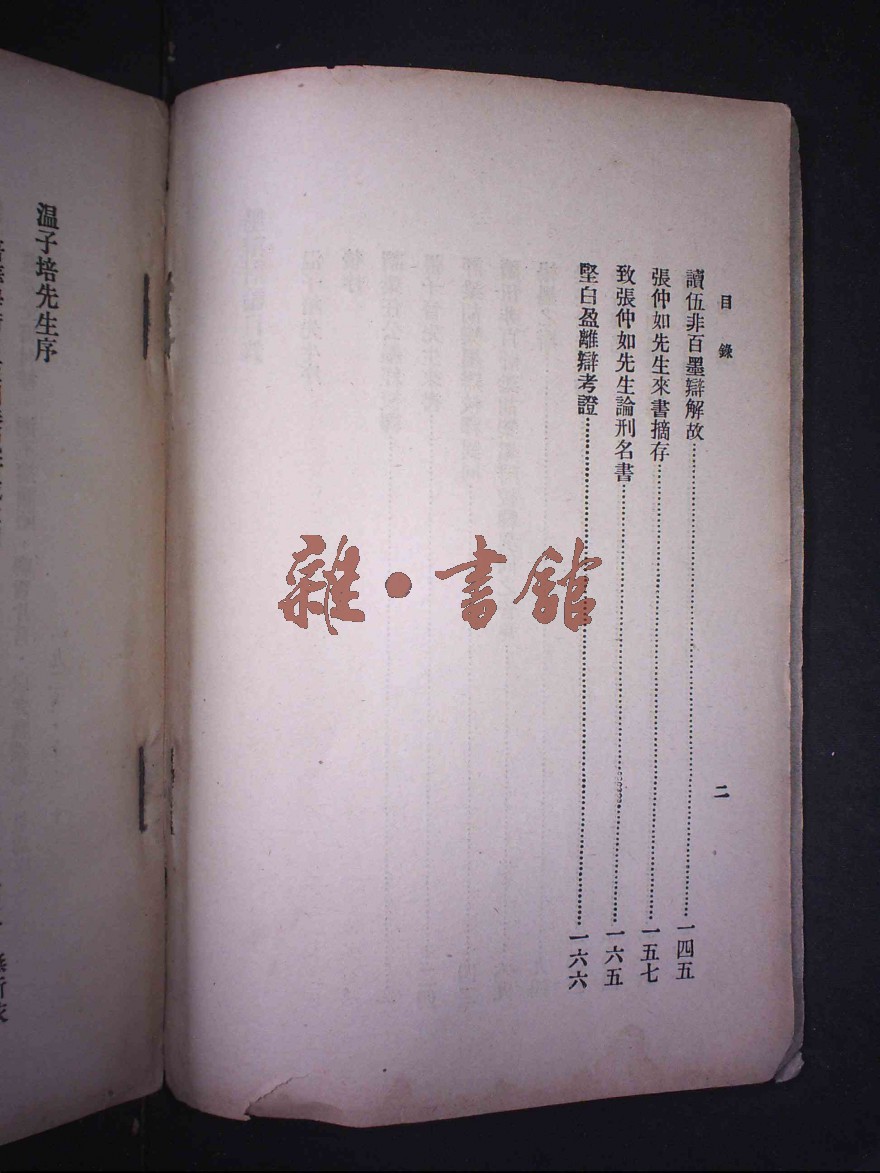 目錄
二
讀伍非百墨辯解故……一四五
張仲如先生來書摘存……一五七
致張仲如先生論刑名書……一六五
堅白盈離辯考證……一六六
雜·書館
温子培先生序